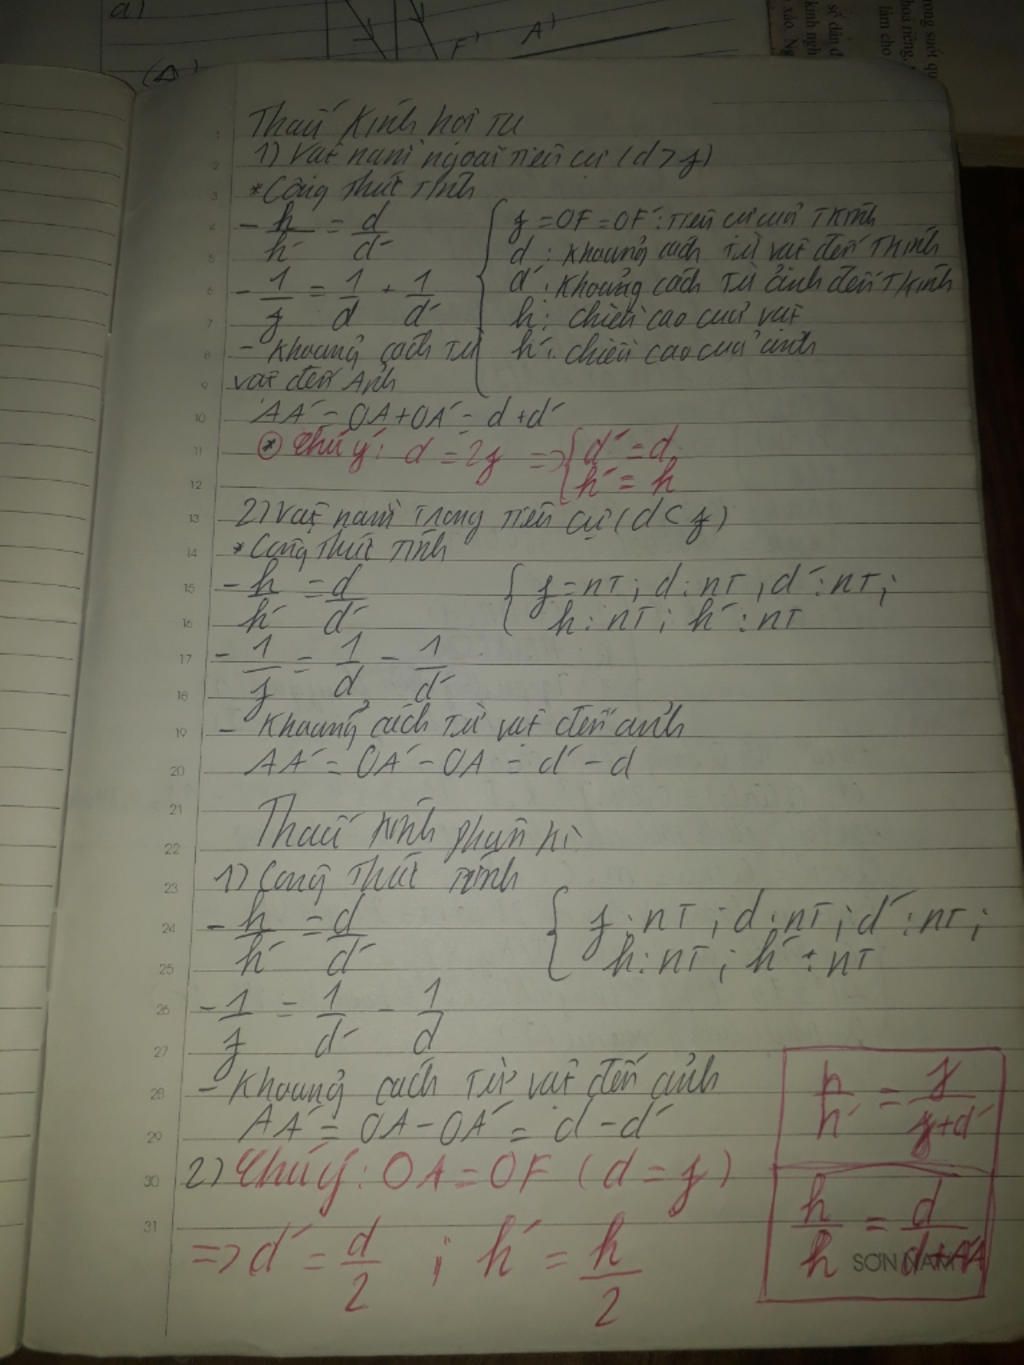 a)
F' A'
(Δ')
Thấu Kính hội tụ
1) Vật nằm ngoài tiêu cự (d > f)
* Công thức tính
- h/h' = d/d'
- 1/f = 1/d + 1/d'
- Khoảng cách từ
vật đến Ảnh
{ f = OF = OF': tiêu cự của Tkính
d : Khoảng cách từ vật đến Tkính
d' : Khoảng cách từ ảnh đến Tkính
h : chiều cao của vật
h' : chiều cao của ảnh
AA' = OA + OA' = d + d'
* Chú ý: d = 2f => { d' = d
h' = h
2) Vật nằm trong tiêu cự (d < f)
* Công thức tính
- h/h' = d/d'
{ f = nT ; d : nT , d' : nT ;
h : nT ; h' : nT
- 1/f = 1/d - 1/d'
- Khoảng cách từ vật đến ảnh
AA' = OA' - OA = d' - d
Thấu kính phân kì
1) Công thức tính
- h/h' = d/d'
{ f : nT ; d : nT ; d' : nT ;
h : nT ; h' : nT
- 1/f = 1/d' - 1/d
- Khoảng cách từ vật đến ảnh
AA' = OA - OA' = d - d'
2) Chú ý: OA = OF (d = f)
=> d' = d/2 ; h' = h/2
h/h' = f/f+d'
h/h = d/d+AA
SƠN NAM
1 2 3 4 5 6 7 8 9 10 11 12 13 14 15 16 17 18 19 20 21 22 23 24 25 26 27 28 29 30 31